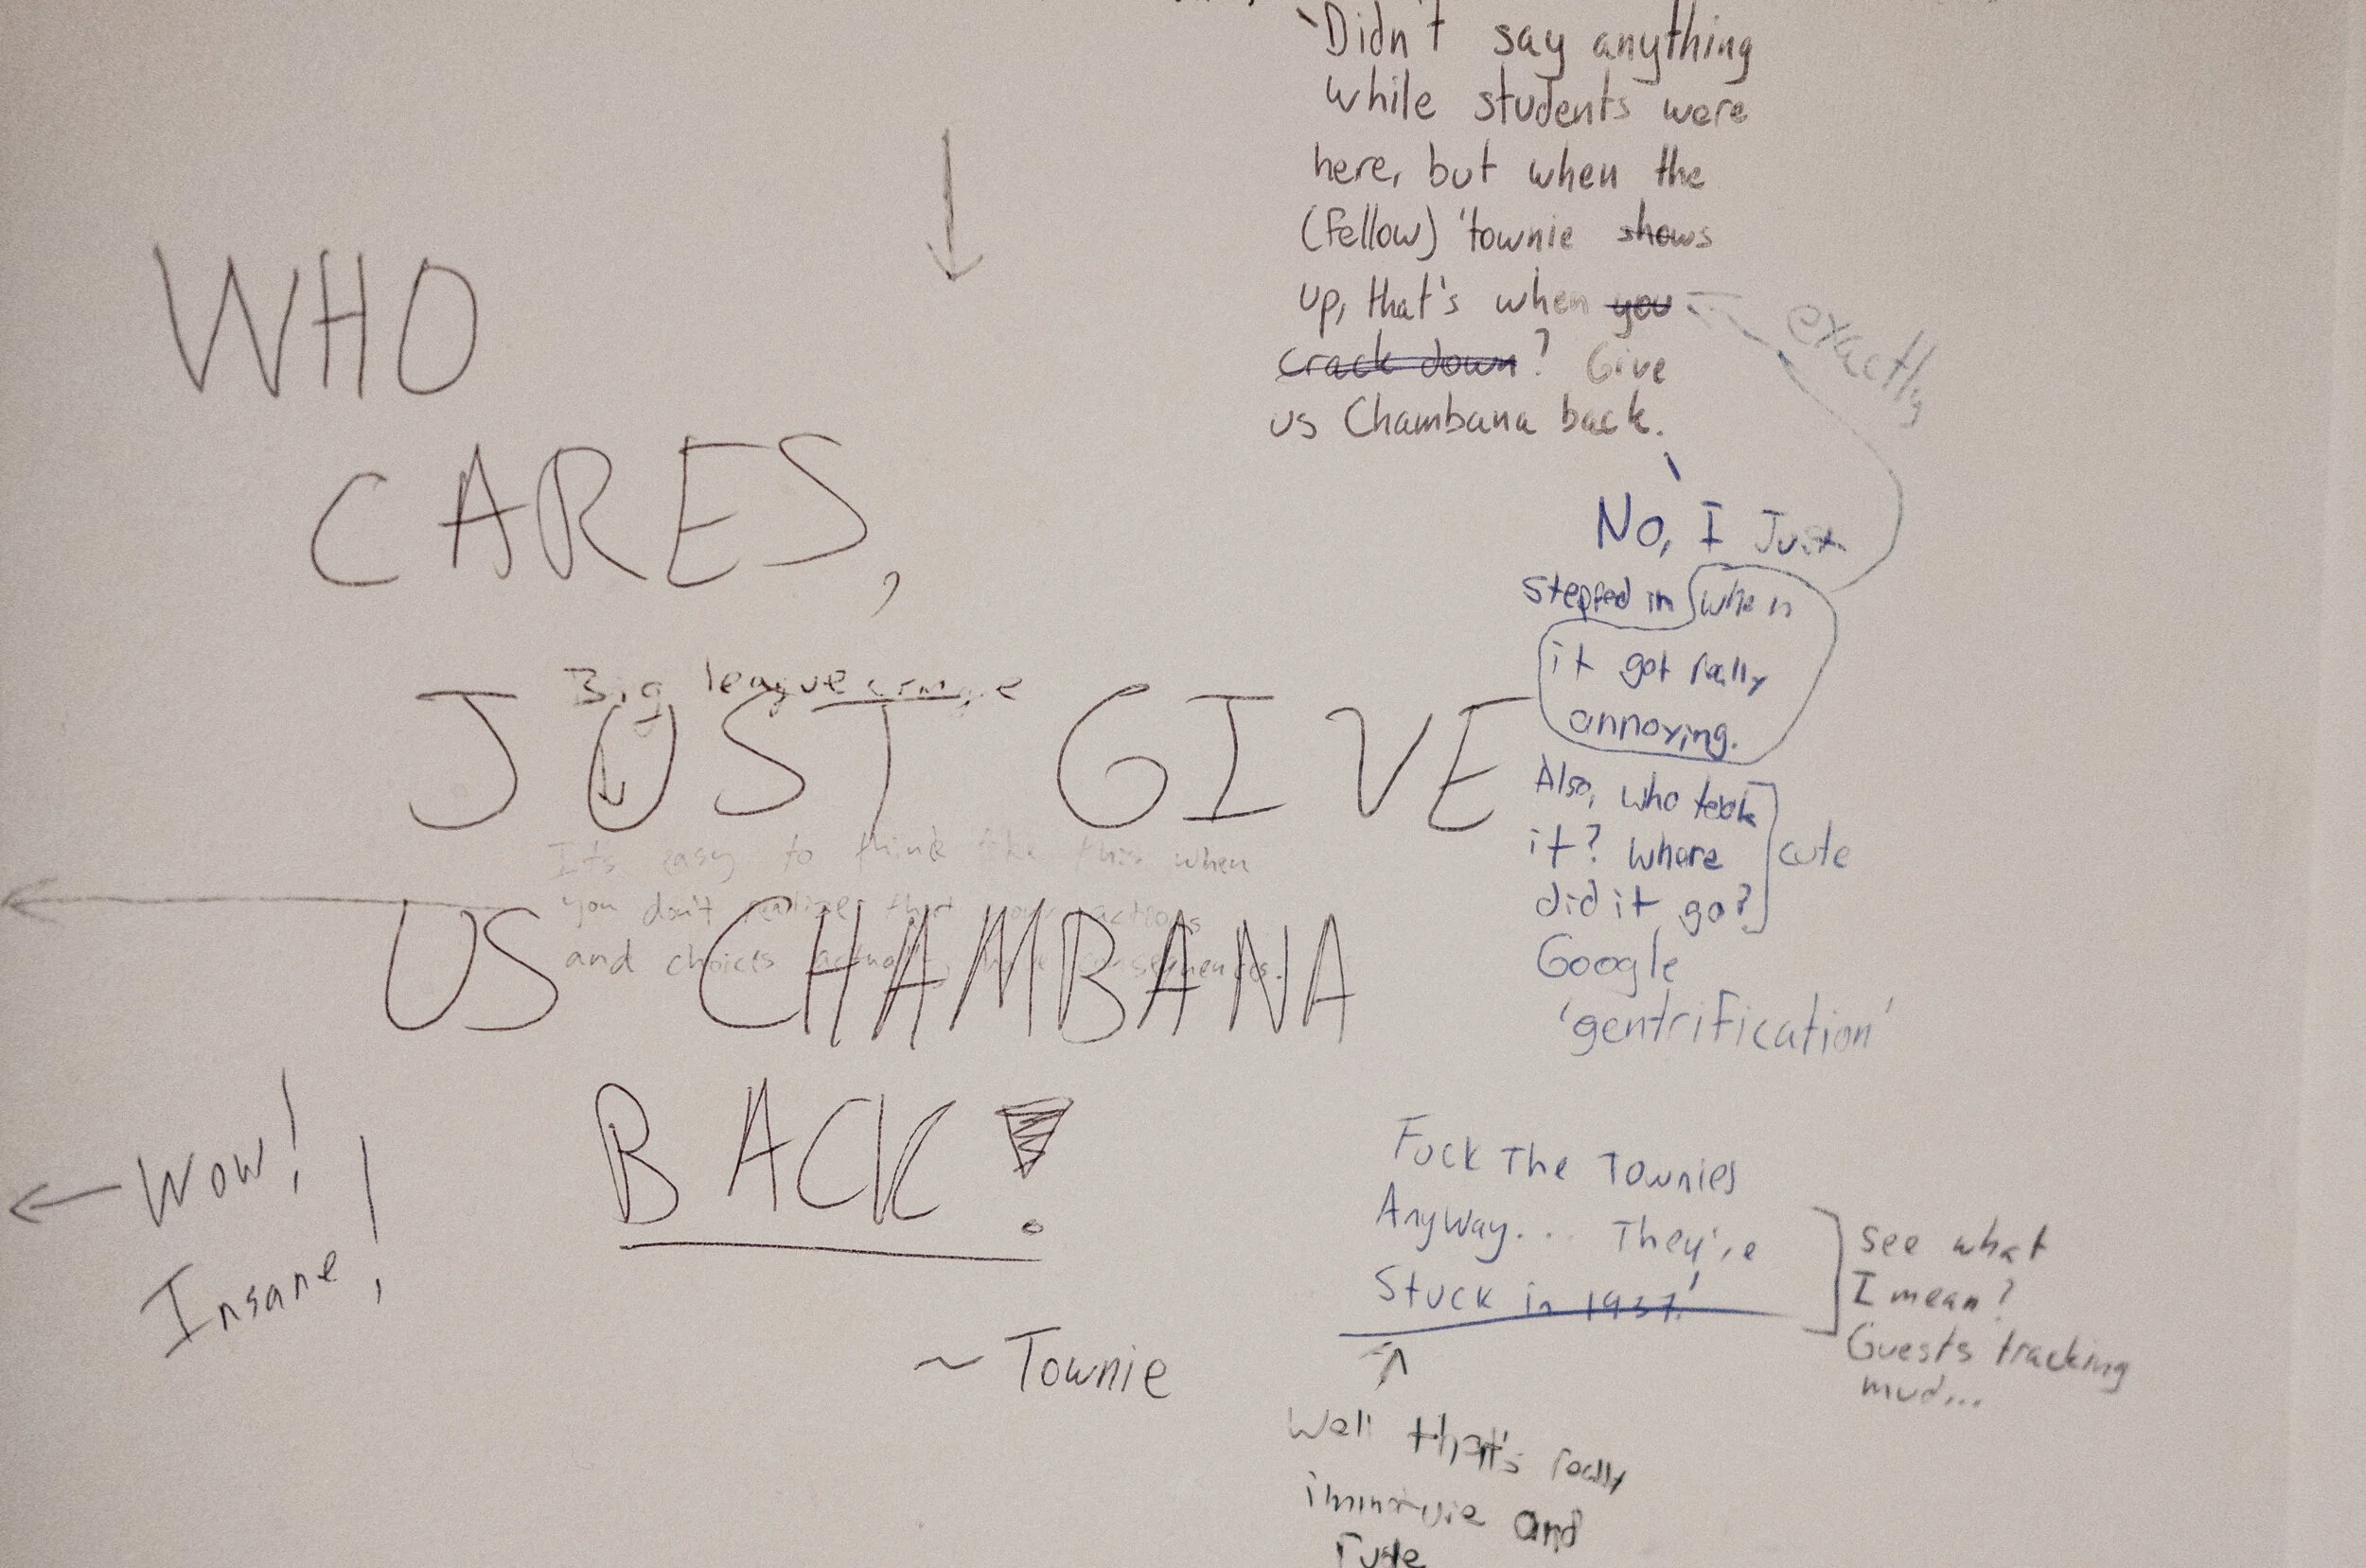 WHO
CARES,
JUST GIVE
US CHAMBANA
BACK!
~ Townie
Big league cringe
It's easy to think like this when
you don't realize that your actions
and choices actually have consequences.
Wow!
Insane!
Didn't say anything
while students were
here, but when the
(fellow) 'townie shows
up, that's when you
crack down? Give
us Chambana back.
exactly
No, I Just
stepped in when
it got really
annoying.
Also, who took
it? Where
did it go?
cute
Google
'gentrification'
Fuck The Townies
Anyway... They're
Stuck in 1937!
see what
I mean?
Guests tracking
mud...
Well that's really
and
rude